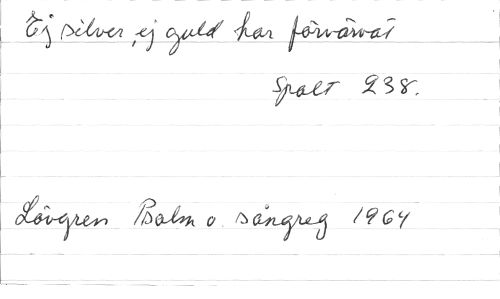 Ej silver, ej guld har förvärvat
Spalt 238.
Lövgren Psalm o. sångreg 1964